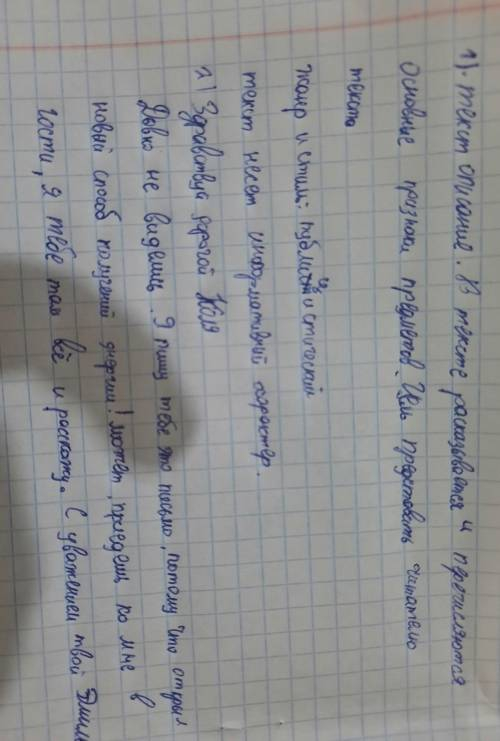 1). текст описание. В тексте расказывается и перечисляются
Основные признаки предметов. Цель представить читателю
текста
Жанр и стиль: публицистический
текст несет информативный характер.
2) Здравствуй дорогой Коля
Давно не виделись. Я пишу тебе это письмо, потому что открыл
новый способ получений энергии! Может, приедешь ко мне в
гости, я тебе там всё и расскажу. С уважением твой